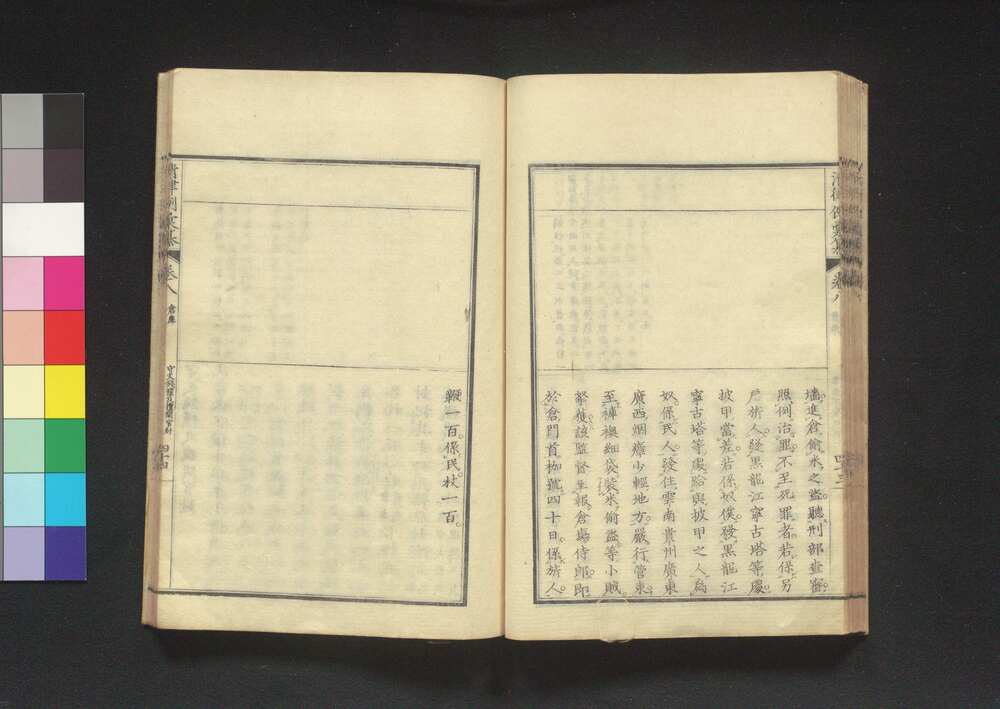 墻進倉偷米之盜聽刑部查審
照例治罪不至死罪者若係另
戶旂人發黑龍江寧古塔等處
披甲當差若係奴僕發黑龍江
寧古塔等處給與披甲之人為
奴係民人發往雲南貴州廣東
廣西烟瘴少輕地方嚴行管束
至褲襖細袋裝米偷盜等小賊
拏獲該監督呈報倉塲侍郎即
於倉門首枷號四十日係旂人
鞭一百係民杖一百
卷八
倉庫